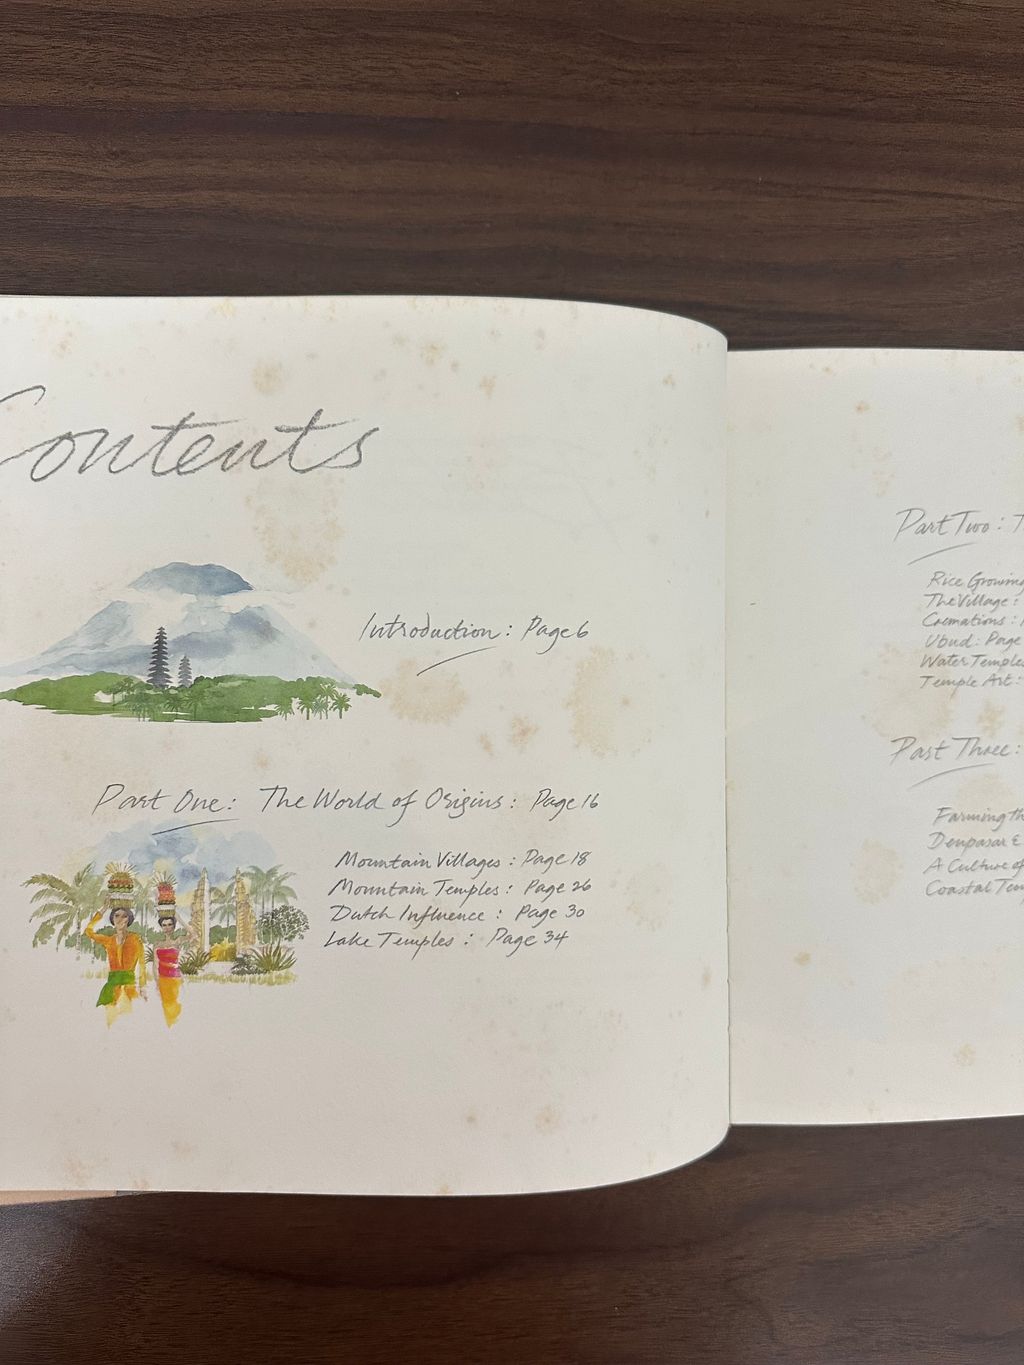 Contents
Introduction: Page 6
Part One: The World of Origins: Page 16
Mountain Villages: Page 18
Mountain Temples: Page 26
Dutch Influence: Page 30
Lake Temples: Page 34
Part Two:
Rice Growing
The Village:
Cremations:
Ubud: Page
Water Temples
Temple Art:
Part Three:
Farming
Denpasar
A Culture of
Coastal